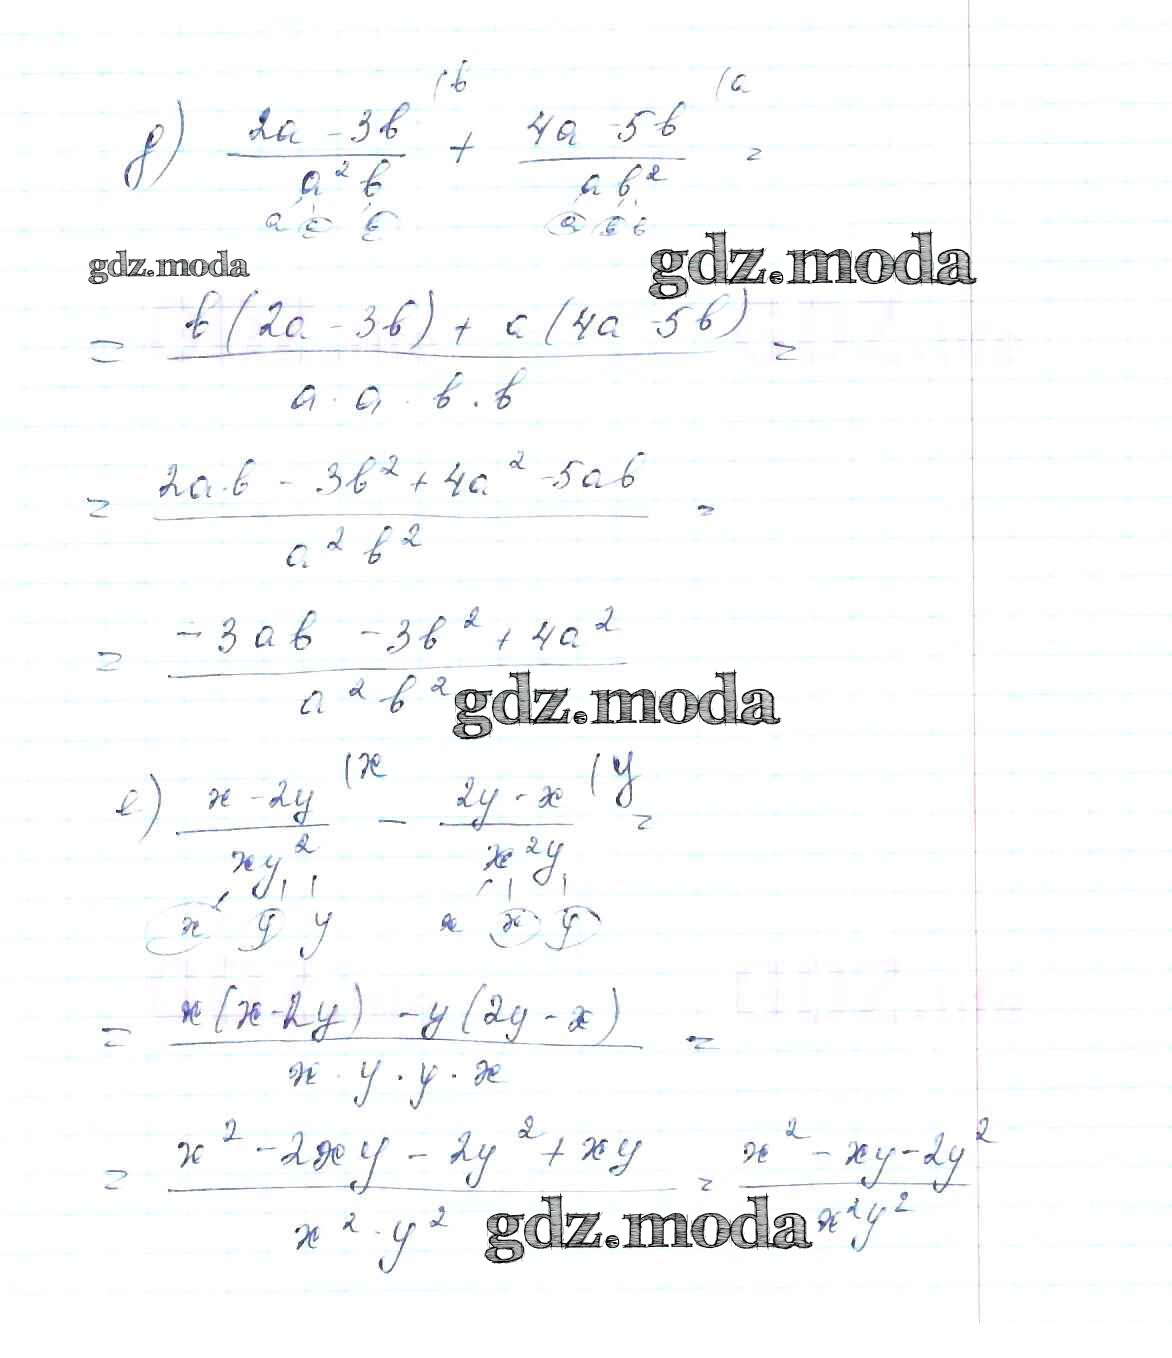 д) (2a - 3b)/(a²b) (b + (4a - 5b)/(ab²) (a =
a a b a b b
gdz.moda gdz.moda
= (b(2a - 3b) + a(4a - 5b))/(a · a · b · b) =
= (2a·b - 3b² + 4a² - 5ab)/(a² b²) =
= (-3ab - 3b² + 4a²)/(a² b²)
gdz.moda
е) (x - 2y)/(xy²) (x - (2y - x)/(x²y) (y =
x y y x x y
= (x(x - 2y) - y(2y - x))/(x · y · y · x) =
= (x² - 2xy - 2y² + xy)/(x² · y²) = (x² - xy - 2y²)/(x²y²)
gdz.moda